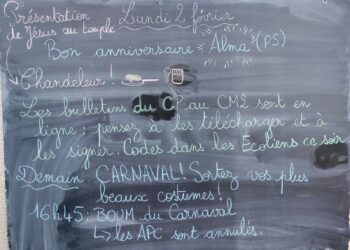 Présentation
de Jésus au temple
Lundi 2 février
Bon anniversaire Alma (PS)
Chandeleur !
Les bulletins du CP au CM2 sont en
ligne ; pensez à les télécharger et à
les signer. Codes dans les Ecoliens ce soir
Demain CARNAVAL ! Sortez vos plus
beaux costumes !
16h45 : BOUM du Carnaval
↳ les APC sont annulés.